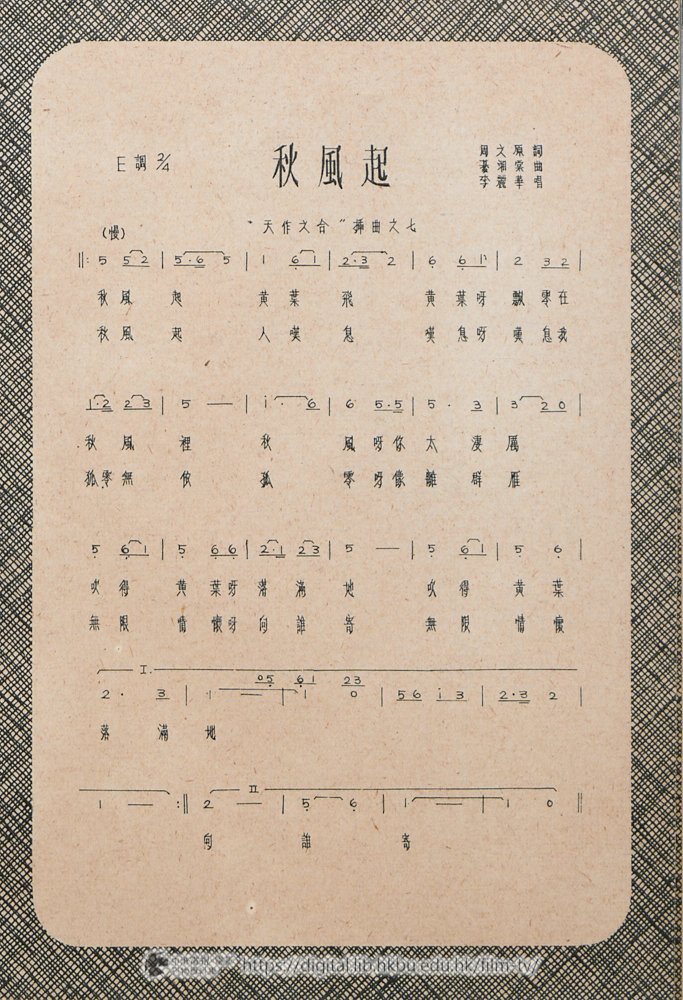 E調 2/4
秋風起
周文原詞
綦湘棠曲
李麗華唱
"天作之合"插曲之七
(慢)
‖: 5 5 2 | 5·6 5 | 1 6 1 | 2·3 2 | 6 6 1 | 2 3 2 |
秋風起 黃葉飛 黃葉呀飄零在
秋風起 人嘆息 嘆息呀嘆息我
1·2 2 3 | 5 — | i· 6 | 6 5·5 | 5· 3 | 3 2 0 |
秋風裡 秋風呀你太淒厲
孤零無依 孤零呀像離群雁
5 6 1 | 5 6 6 | 2·1 2 3 | 5 — | 5 6 1 | 5 6 |
吹得黃葉呀落滿地 吹得黃葉
無限情懷呀向誰寄 無限情懷
I.
0 5 6 1 2 3
2· 3 | 1 — | 1 0 | 5 6 i 3 | 2·3 2 |
落滿地
II
1 — :‖ 2 — | 5 6 | 1 — | 1 0 ‖
向誰寄
https://digital.lib.hkbu.edu.hk/film-tv/